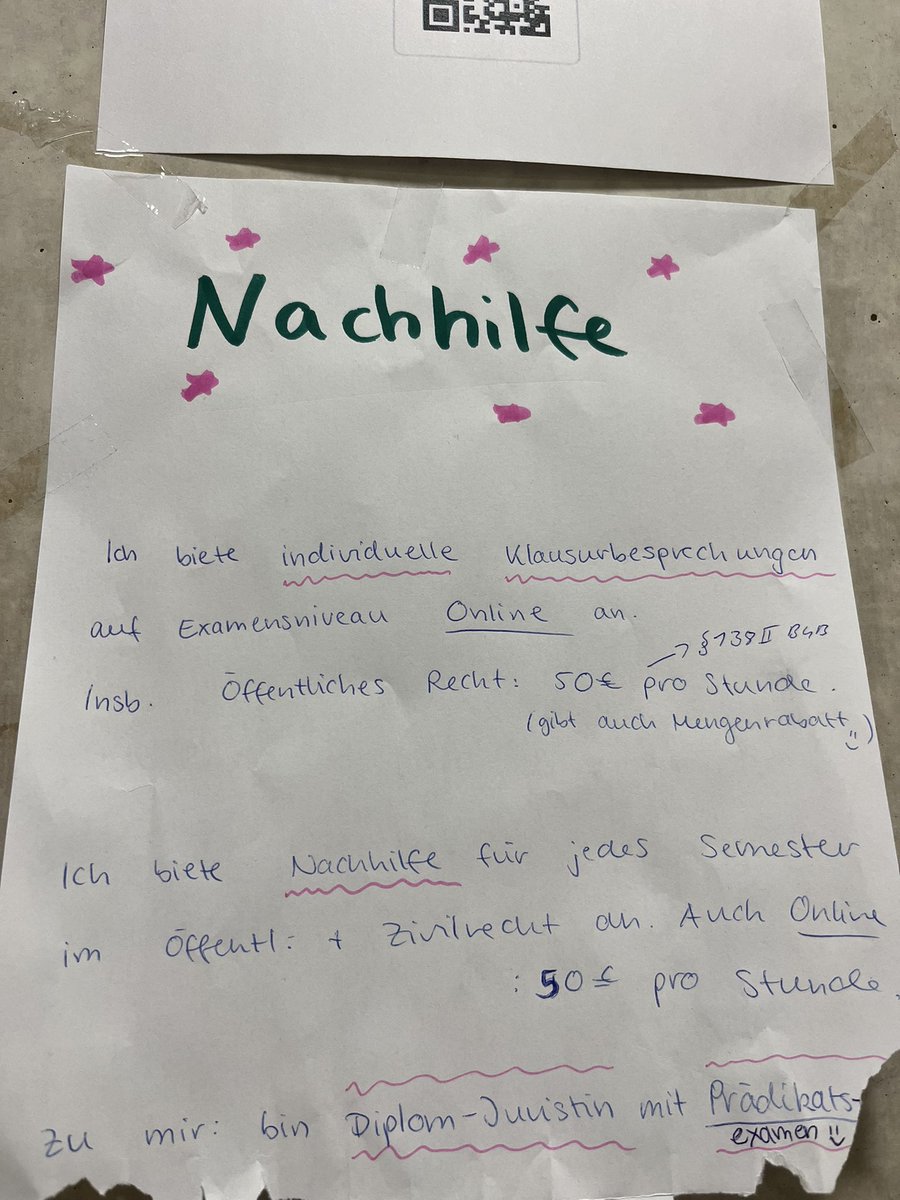 Nachhilfe
Ich biete individuelle Klausurbesprechungen
auf Examensniveau Online an.
→ §138 II BGB
Insb. Öffentliches Recht: 50€ pro Stunde.
(gibt auch Mengenrabatt)
Ich biete Nachhilfe für jedes Semester
im Öffentl. + Zivilrecht an. Auch Online
: 50€ pro Stunde.
Zu mir: bin Diplom-Juristin mit Prädikats-
examen